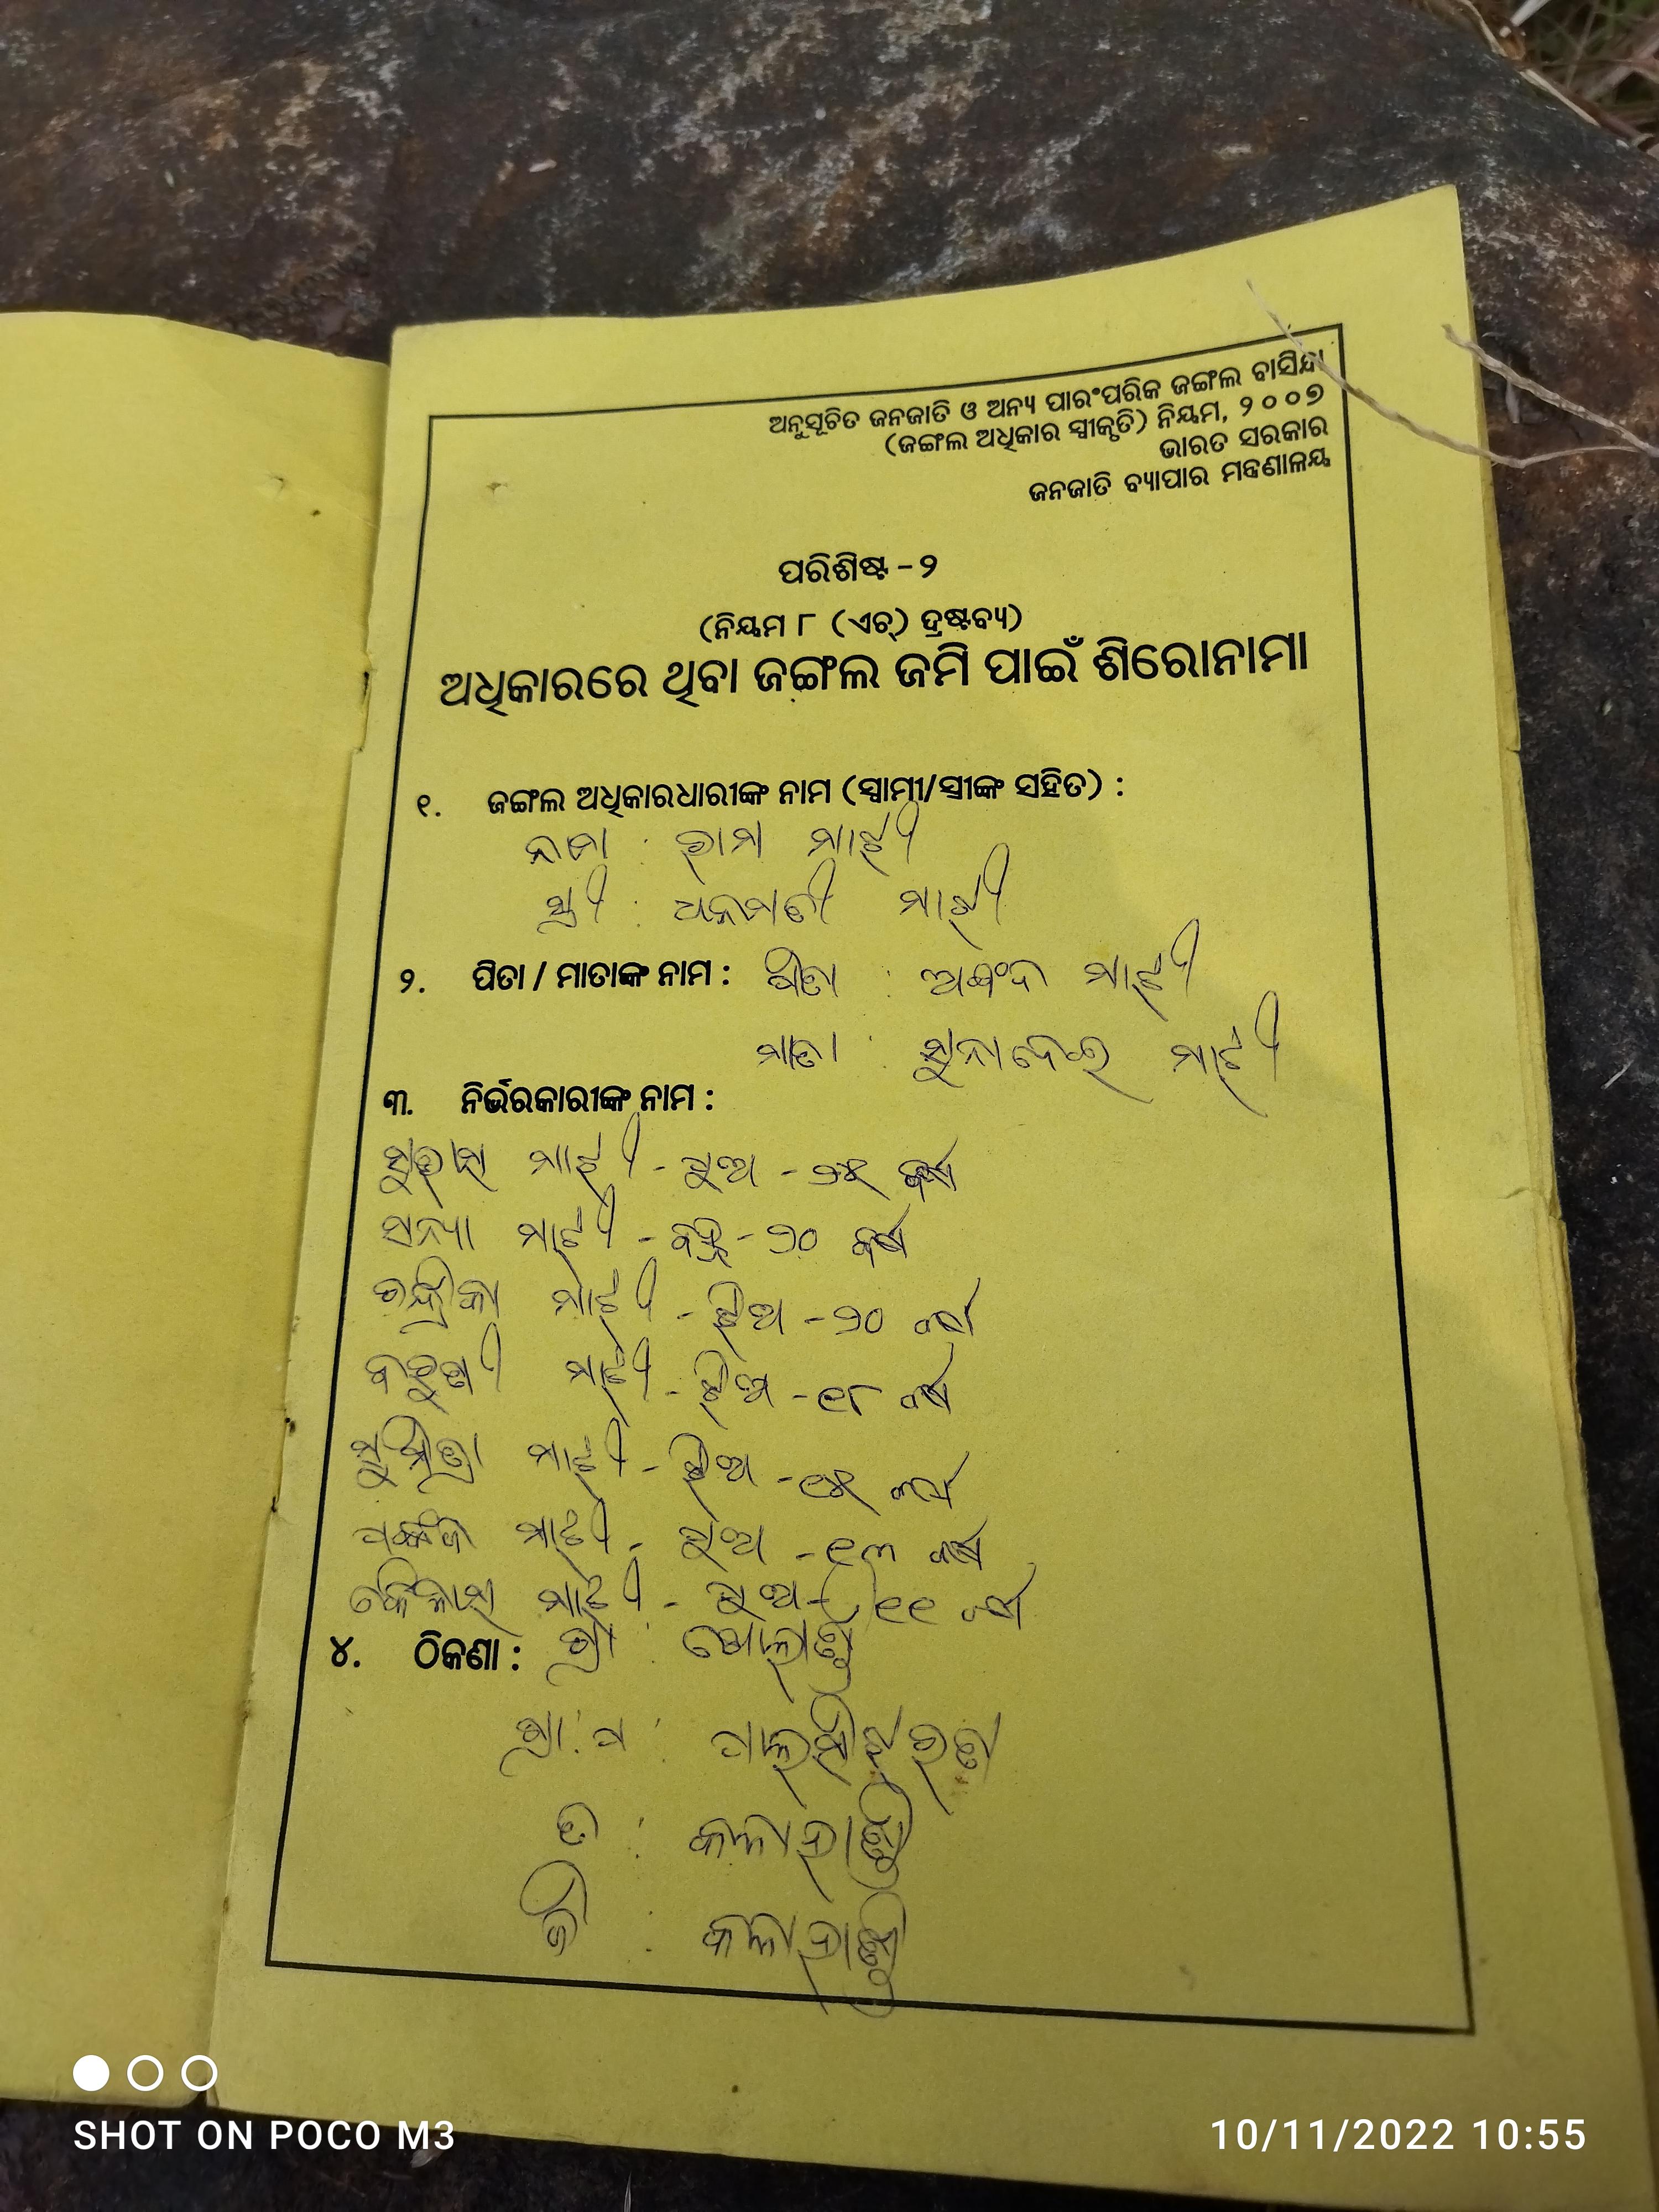 ଅନୁସୂଚିତ ଜନଜାତି ଓ ଅନ୍ୟ ପାରଂପରିକ ଜଙ୍ଗଲ ବାସିନ୍ଦା
(ଜଙ୍ଗଲ ଅଧିକାର ସ୍ୱୀକୃତି) ନିୟମ, ୨୦୦୭
ଭାରତ ସରକାର
ଜନଜାତି ବ୍ୟାପାର ମନ୍ତ୍ରଣାଳୟ
ପରିଶିଷ୍ଟ -୨
(ନିୟମ ୮ (ଏଚ୍) ଦ୍ରଷ୍ଟବ୍ୟ)
ଅଧିକାରରେ ଥିବା ଜଙ୍ଗଲ ଜମି ପାଇଁ ଶିରୋନାମା
୧. ଜଙ୍ଗଲ ଅଧିକାରଧାରୀଙ୍କ ନାମ (ସ୍ୱାମୀ/ସ୍ତ୍ରୀଙ୍କ ସହିତ) :
ନାମ : ରାମ ମାଝୀ
ସ୍ତ୍ରୀ : ଧନମତୀ ମାଝୀ
୨. ପିତା / ମାତାଙ୍କ ନାମ : ପିତା : ମାଝୀ
ମାତା : ସୁନାଦେଈ ମାଝୀ
୩. ନିର୍ଭରକାରୀଙ୍କ ନାମ :
ସୁଭାଷ ମାଝୀ - ପୁଅ - ୨୫ ବର୍ଷ
ସନ୍ୟା ମାଝୀ - ବହୁ - ୨୦ ବର୍ଷ
ଚନ୍ଦ୍ରିକା ମାଝୀ - ଝିଅ - ୨୦ ବର୍ଷ
ମାଝୀ - ଝିଅ - ୧୮ ବର୍ଷ
ସୁମିତ୍ରା ମାଝୀ - ଝିଅ - ୧୫ ବର୍ଷ
ପଙ୍କଜ ମାଝୀ - ପୁଅ - ୧୩ ବର୍ଷ
କୈଳାସ ମାଝୀ - ପୁଅ - ୧୧ ବର୍ଷ
୪. ଠିକଣା : ଗ୍ରା :
ଗ୍ରା.ପ :
ତ : କଳାହାଣ୍ଡି
ଜି : କଳାହାଣ୍ଡି
SHOT ON POCO M3
10/11/2022 10:55